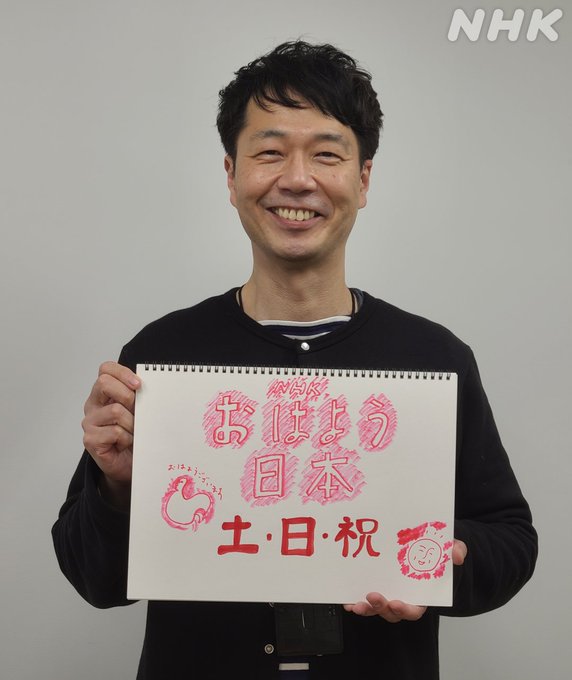 NHK
NHK
おはよう
日本
おはようございます
土・日・祝